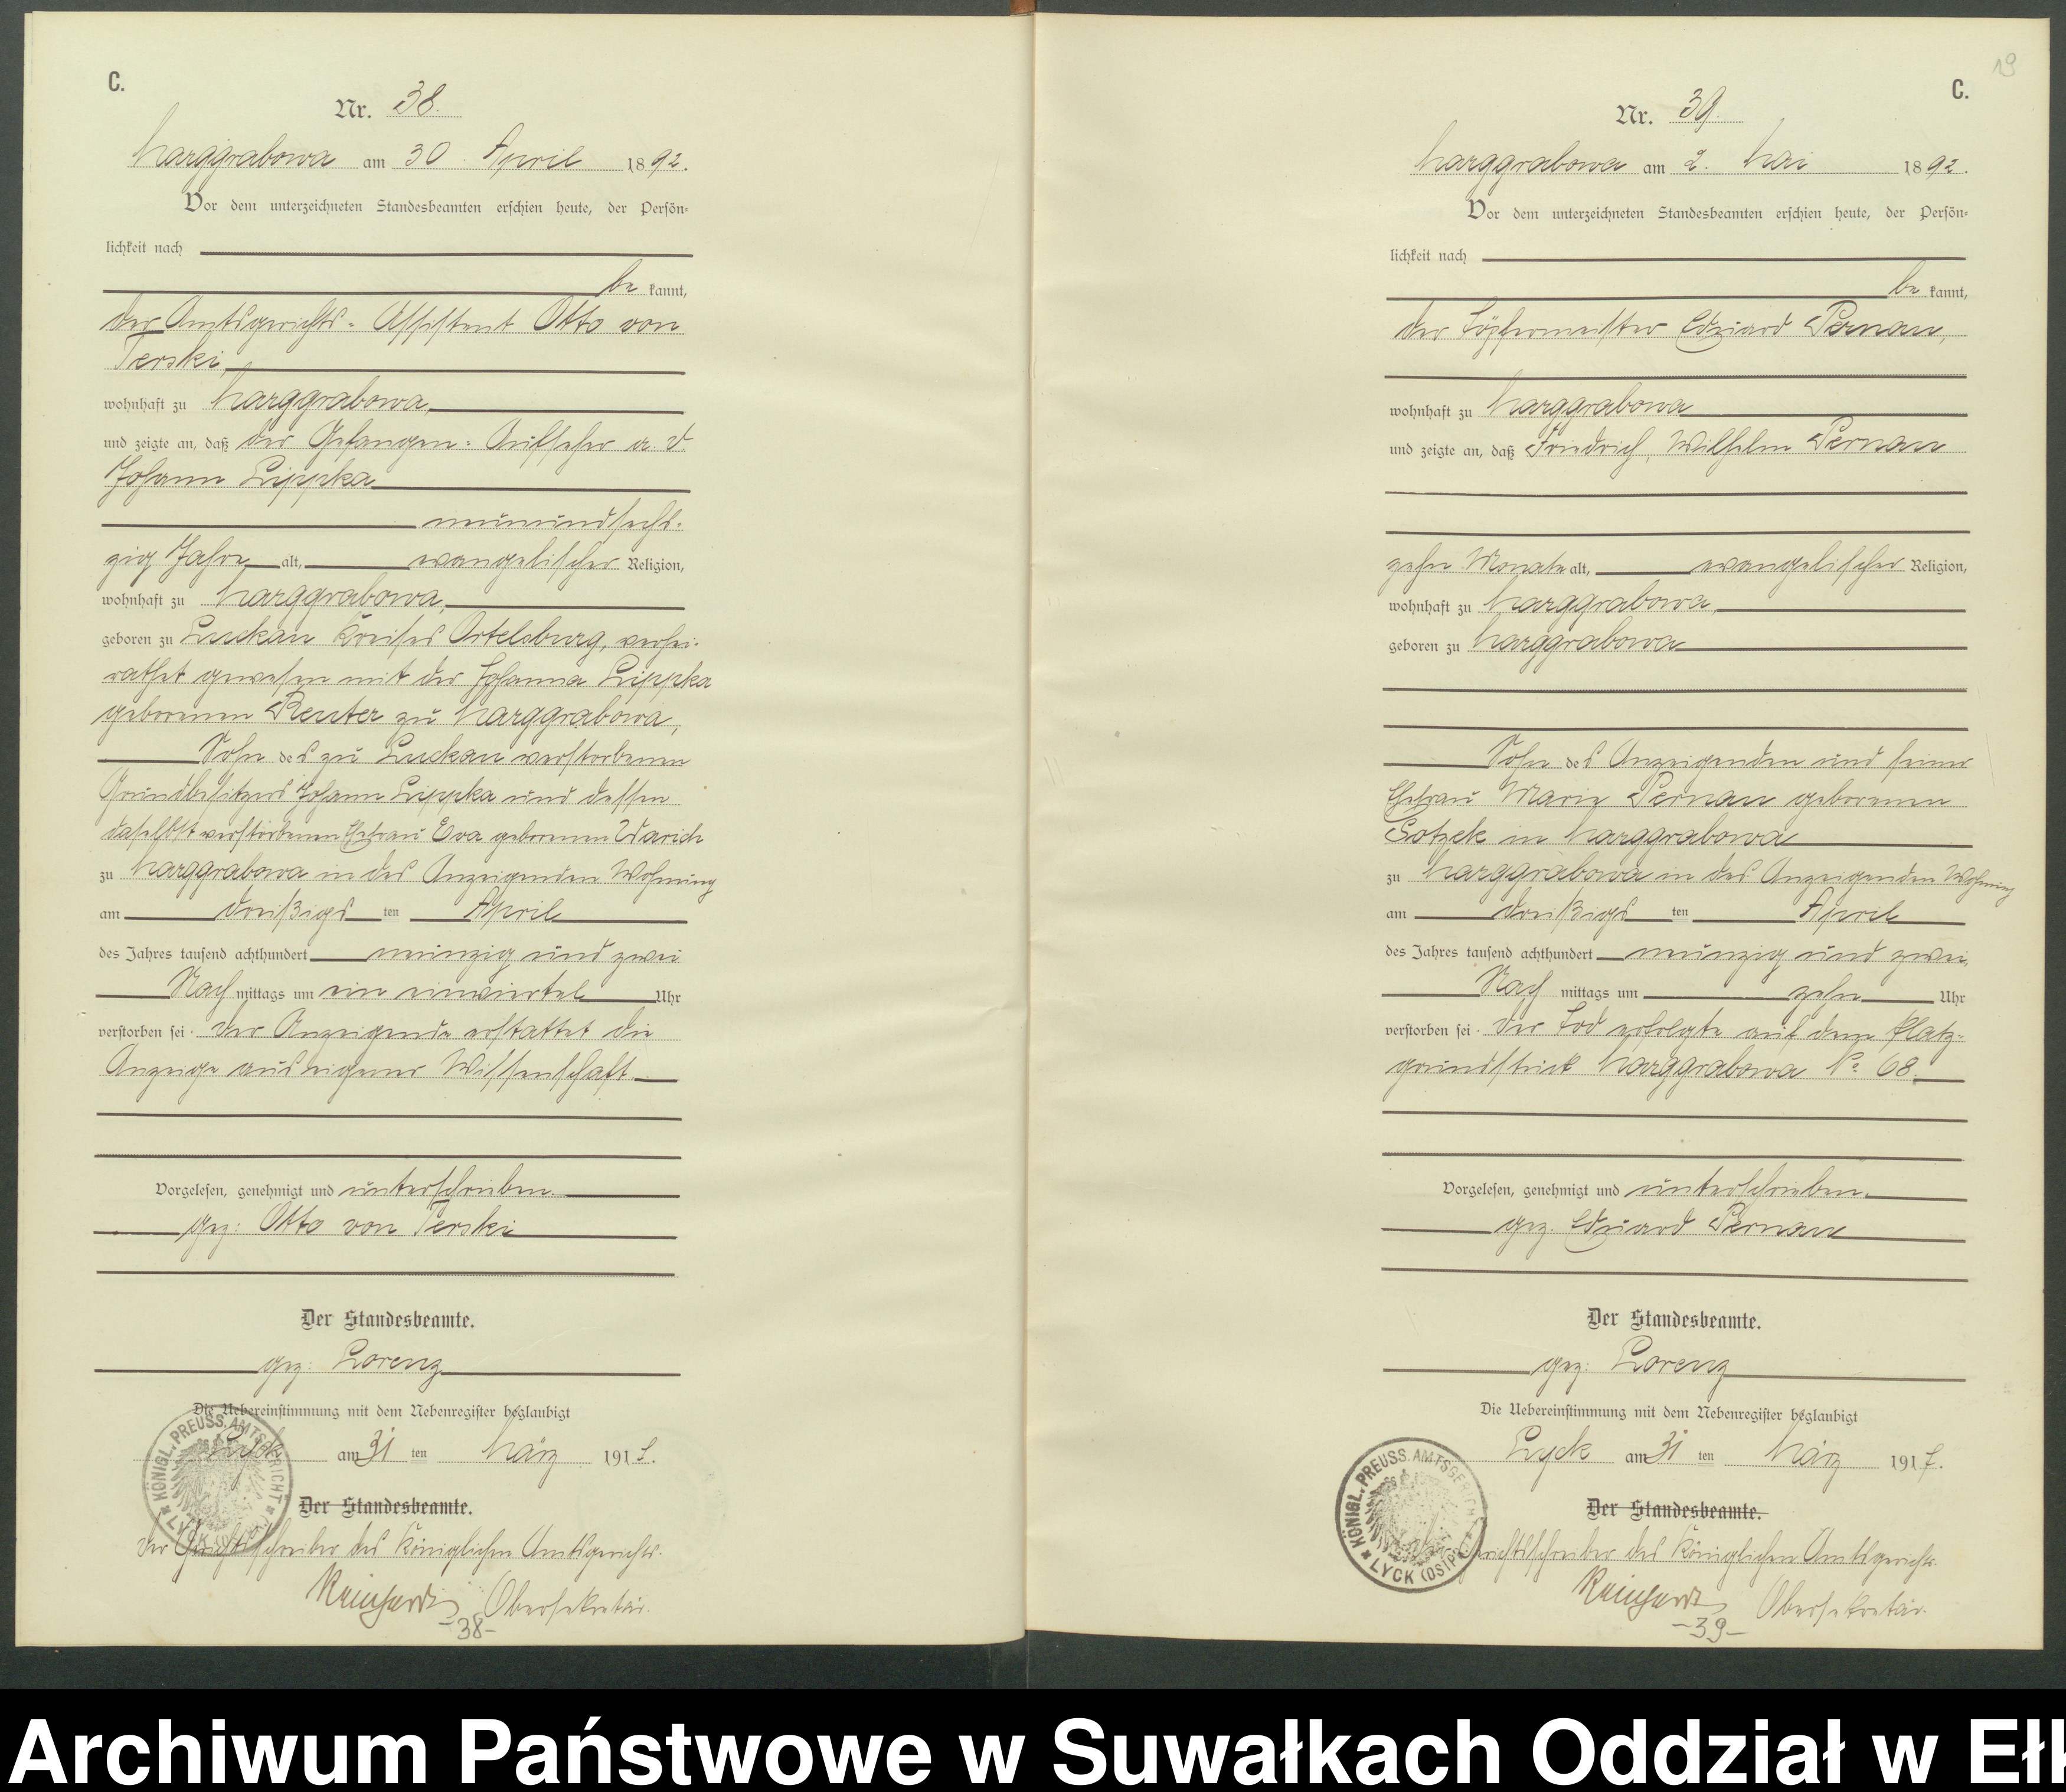 C.
Nr. 38.
Marggrabowa am 30. April 1892.
Vor dem unterzeichneten Standesbeamten erschien heute, der Persön-
lichkeit nach
be kannt,
der Amtsgerichts-Assistent Otto von
Terski,
wohnhaft zu Marggrabowa,
und zeigte an, daß der Gefangen-Aufseher a. D.
Johann Lippka
neunundsech-
zig Jahre alt, evangelischer Religion,
wohnhaft zu Marggrabowa,
geboren zu Luckau Kreises Ortelsburg, verhei-
rathet gewesen mit der Johanna Lippka
geborenen Reuter zu Marggrabowa,
Sohn des zu Luckau verstorbenen
Grundbesitzers Johann Lippka und dessen
daselbst verstorbenen Ehefrau Eva geborenen Warich
zu Marggrabowa in des Anzeigenden Wohnung
am dreißigs ten April
des Jahres tausend achthundert neunzig und zwei
Nach mittags um ein einviertel Uhr
verstorben sei. Der Anzeigende erstattet die
Anzeige aus eigener Wissenschaft.
Vorgelesen, genehmigt und unterschrieben
gez: Otto von Terski
Der Standesbeamte.
gez: Lorenz
Die Uebereinstimmung mit dem Nebenregister beglaubigt
Lyck am 31 ten März 191
Der Standesbeamte.
Der Gerichtsschreiber des Königlichen Amtsgerichts.
Reinhardt Obersekretär.
-38-
KÖNIGL. PREUSS. AMTSGERICHT
LYCK
19
C.
Nr. 39.
Marggrabowa am 2. Mai 1892.
Vor dem unterzeichneten Standesbeamten erschien heute, der Persön-
lichkeit nach
be kannt,
der Töpfermeister Eduard Pernau,
wohnhaft zu Marggrabowa
und zeigte an, daß Friedrich, Wilhelm Pernau
zehn Monate alt, evangelischer Religion,
wohnhaft zu Marggrabowa,
geboren zu Marggrabowa
Sohn des Anzeigenden und seiner
Ehefrau Marie Pernau geborenen
Sotzek in Marggrabowa
zu Marggrabowa in des Anzeigenden Wohnung
am dreißigs ten April
des Jahres tausend achthundert neunzig und zwei,
Nach mittags um zehn Uhr
verstorben sei. Der Tod erfolgte auf dem Platz-
grundstück Marggrabowa No 68.
Vorgelesen, genehmigt und unterschrieben.
gez. Eduard Pernau
Der Standesbeamte.
gez: Lorenz
Die Uebereinstimmung mit dem Nebenregister beglaubigt
Lyck am 31 ten März 191
Der Standesbeamte.
Gerichtsschreiber des Königlichen Amtsgerichts.
Reinhardt Obersekretär.
-39-
KÖNIGL. PREUSS. AMTSGERICHT
LYCK (OSTPR.)
Archiwum Państwowe w Suwałkach Oddział w Ełk